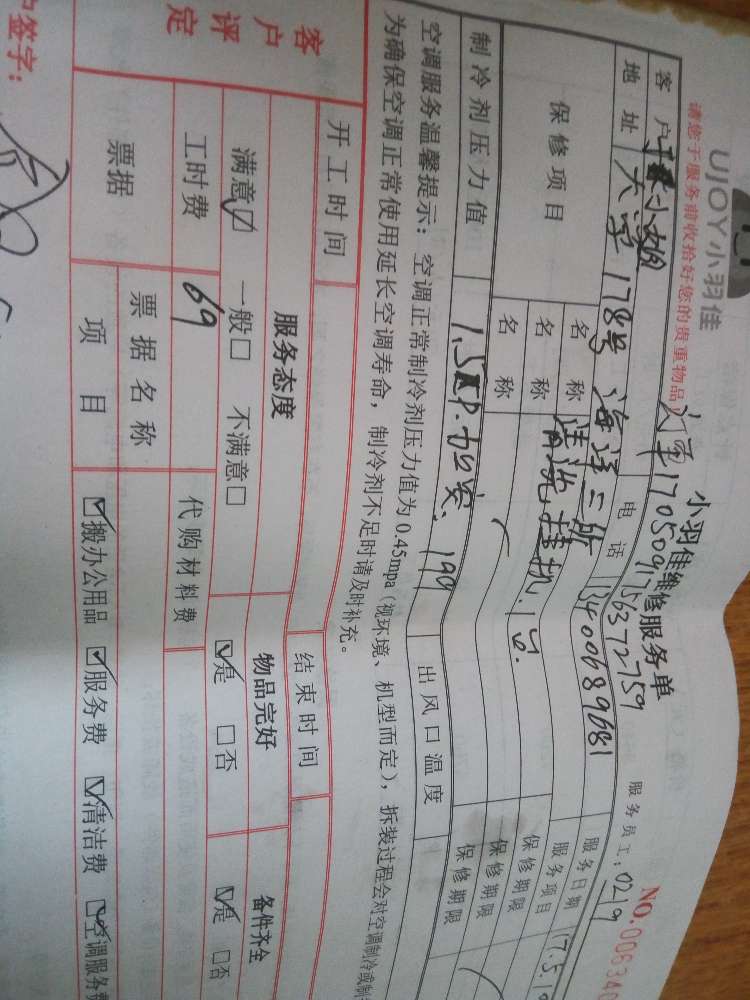 UJOY小羽佳
小羽佳维修服务单
NO.006340
请您于服务前收拾好您的贵重物品
服务员工：0219
客户 小姐
17050917563 72759
地址 大学178号 海洋二所
电话 13400689681
服务日期 17.5.1
保修项目
名称 清洗挂机.1台.
服务项目
名称
保修期限
名称
保修期限
保修期限
制冷剂压力值 1.5P.加安. 199
出风口温度
空调服务温馨提示：空调正常制冷剂压力值为0.45mpa（视环境、机型而定），拆装过程会对空调制冷或制
为确保空调正常使用延长空调寿命，制冷剂不足时请及时补充。
开工时间
结束时间
客户评定
服务态度
物品完好
备件齐全
满意☑ 一般□ 不满意□
☑是 □否
☑是 □否
工时费 69
代购材料费
票据
票据名称
项目
☑搬办公用品 ☑服务费 ☑清洁费 ☑空调服务费
户签字：